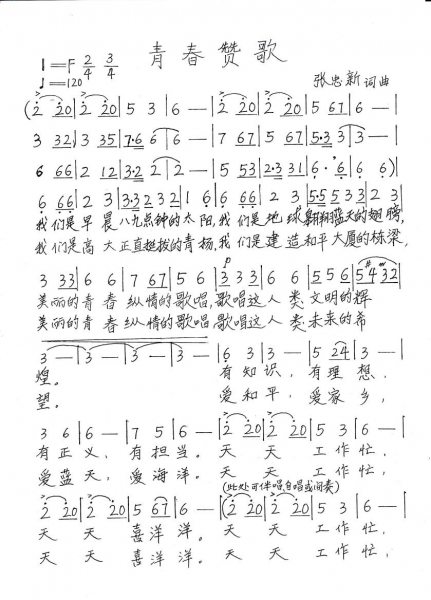 青春赞歌
1=F 2/4 3/4
♩=120
张忠新 词曲
(2 20|2 20|5 3|6 —|2 20|2 20|5 67|6 —|
3 32|3 35|7·6 6|6 —|7 67|5 67|5·3 3|3 —|
6 66|2 12|3 —|2 —|5 53|2·3 31|6 · 6|6 6)|
6 66|2 3|3·3 2 32 1|6 6 66|2 3|5·5 5 3 3|2 3|
我们是早晨八九点钟的太阳,我们是地球翱翔蓝天的翅膀,
我们是高大正直挺拔的青杨,我们是建造和平大厦的栋梁,
3 33|6 6|7 67|5 6|3 33|6 6|5 56|5 4 32|
美丽的青春纵情的歌唱,歌唱这人类文明的辉
美丽的青春纵情的歌唱,歌唱这人类未来的希
3 —|3 —|3 —|3 —|6 3|3 —|5 24|3 —|
煌。有知识,有理想,
望。爱和平,爱家乡,
3 6|6 —|7 5|6 —|2 20|2 20|5 3|6 —|
有正义,有担当。天天工作忙,
爱蓝天,爱海洋。天天工作忙,
(此处可伴唱自唱或间奏)
2 20|2 20|5 67|6 —|(2 20|2 20|5 3|6 —|
天天喜洋洋。天天工作忙,
天天喜洋洋。天天工作忙,